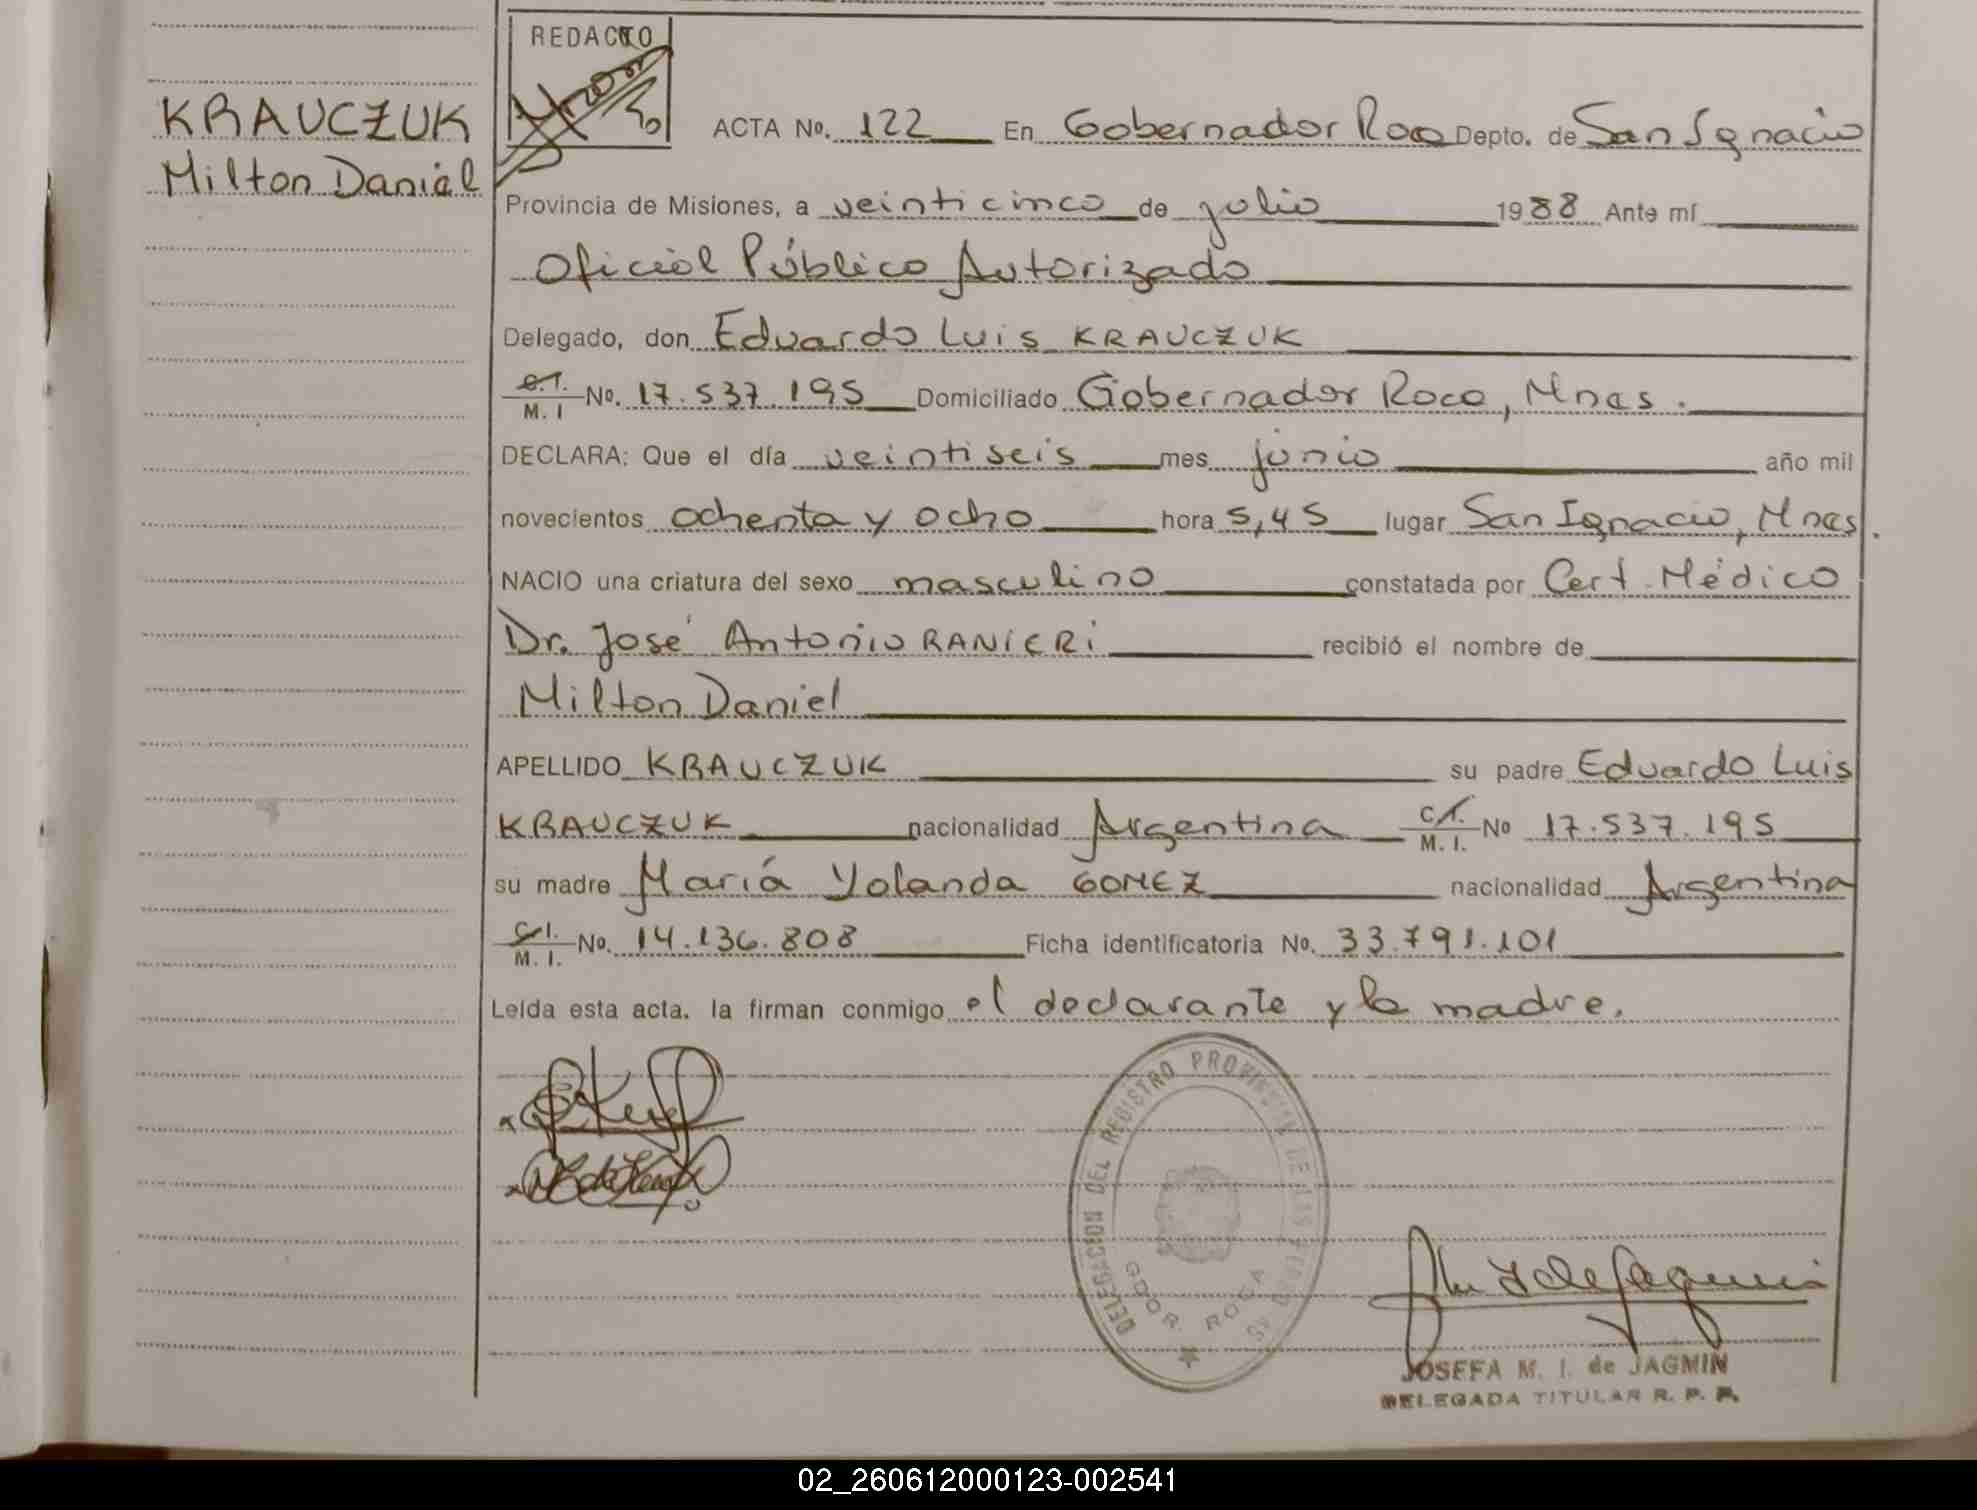 REDACTO
KRAUCZUK
Milton Daniel
ACTA No. 122 En Gobernador Roca Depto. de San Ignacio
Provincia de Misiones, a veinticinco de julio 1988 Ante mí
Oficial Público Autorizado
Delegado, don Eduardo Luis KRAUCZUK
C.I. M. I No. 17.537.195 Domiciliado Gobernador Roca, Mnes.
DECLARA: Que el día veintiseis mes junio año mil
novecientos ochenta y ocho hora 5,45 lugar San Ignacio, Mnes.
NACIO una criatura del sexo masculino constatada por Cert. Médico
Dr. José Antonio RANIERI recibió el nombre de
Milton Daniel
APELLIDO KRAUCZUK su padre Eduardo Luis
KRAUCZUK nacionalidad Argentina C.I. M. I. No 17.537.195
su madre María Yolanda GOMEZ nacionalidad Argentina
C.I. M. I. No. 14.136.808 Ficha identificatoria No. 33.791.101
Leída esta acta. la firman conmigo el declarante y la madre.
DELEGACION DEL REGISTRO PROVINCIAL DE LAS PERSONAS
GDOR. ROCA
JOSEFA M. I. de JAGMIN
DELEGADA TITULAR R. P. P.
02_260612000123-002541